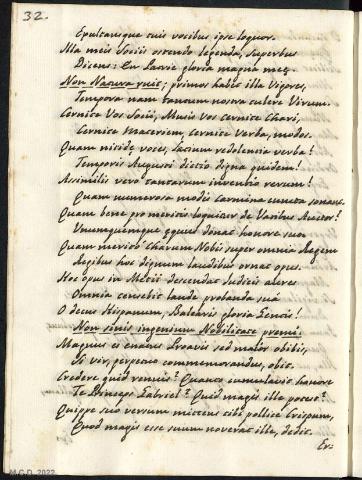 32.
Epulasque suis vocibus ipse loquor.
Illa meis Sociis ostendo legenda, superbus
Dicens: En Patriæ gloria magna meę
Non Natura ruit; primos habet illa Vigores,
Tempora nam tantum nostra tulere Virum.
Cernite Vos Socii, Musis vos cernite Chari,
Cernite Materiem, cernite Verba, modos.
Quam nitidę voces, Latium redolentia verba!
Temporis Augusti dictio digna quidem!
Assimilis vero tantarum inventio rerum!
Quam numerosa modis carmina cuncta sonant.
Quam bene pro meritis loquitur de Vatibus Auctor!
Unumquemque ęquus donat honore suo
Quam merito Charum Nobis super omnia Regem
Regibus hoc dignum laudibus ornat opus.
Hoc opus in Metii descendat Judicis aures
Omnia censebit laude probanda suâ
O decus Hispanum, Balearis gloria Gentis!
Non sinis ingenium Nobilitate premi.
Magnus es end Proavis sed maior obibis,
Si vir, perpetuo commemorandus, obit.
Credere quid renuis? Quanto cumulavit honore
Te Princeps Gabriel? Quid magis ille potest?
Quippe suo versum mittens tibi pollice Crispum,
Quod magis esse suum noverat ille, dedit.
Er=
M.C.D. 2022